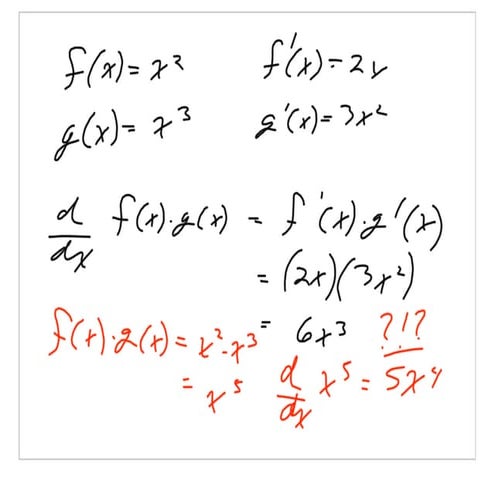 f(x) = x² f'(x) = 2x
g(x) = x³ g'(x) = 3x²
d/dx f(x)·g(x) = f'(x)·g'(x)
= (2x)(3x²)
= 6x³ ?!?
f(x)·g(x) = x²·x³
= x⁵ d/dx x⁵ = 5x⁴